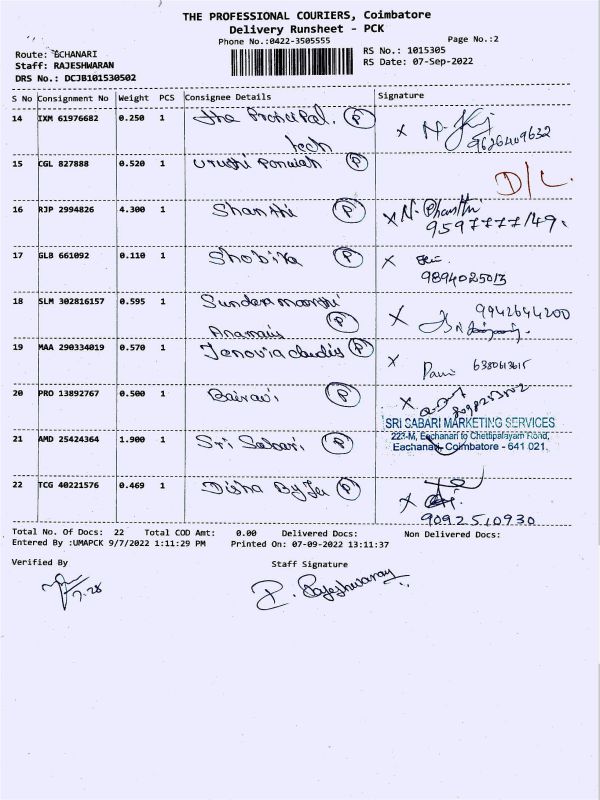 THE PROFESSIONAL COURIERS, Coimbatore
Delivery Runsheet - PCK
Phone No.:0422-3505555
Page No.:2
Route: ECHANARI
RS No.: 1015305
Staff: RAJESHWARAN
RS Date: 07-Sep-2022
DRS No.: DCJB101530502
S No Consignment No Weight PCS Consignee Details Signature
14 IXM 61976682 0.250 1 The Principal. P X
tech 9626409632
15 CGL 827888 0.520 1 P D/L
16 RJP 2994826 4.300 1 Shanthi P X N.
17 GLB 661092 0.110 1 Shobika P X
9894025013
18 SLM 302816157 0.595 1 Sundaramoorthi P X 9942644200
19 MAA 290334019 0.570 1 P X 6380613615
20 PRO 13892767 0.500 1 Bairavi P X
SRI SABARI MARKETING SERVICES
223-M, Eachanari to Chettipalayam Road,
Eachanari, Coimbatore - 641 021.
21 AMD 25424364 1.900 1 Sri Sabari. P
22 TCG 40221576 0.469 1 Disha P X
9092510930
Total No. Of Docs: 22 Total COD Amt: 0.00 Delivered Docs: Non Delivered Docs:
Entered By :UMAPCK 9/7/2022 1:11:29 PM Printed On: 07-09-2022 13:11:37
Verified By Staff Signature
P. Rajeshwaran